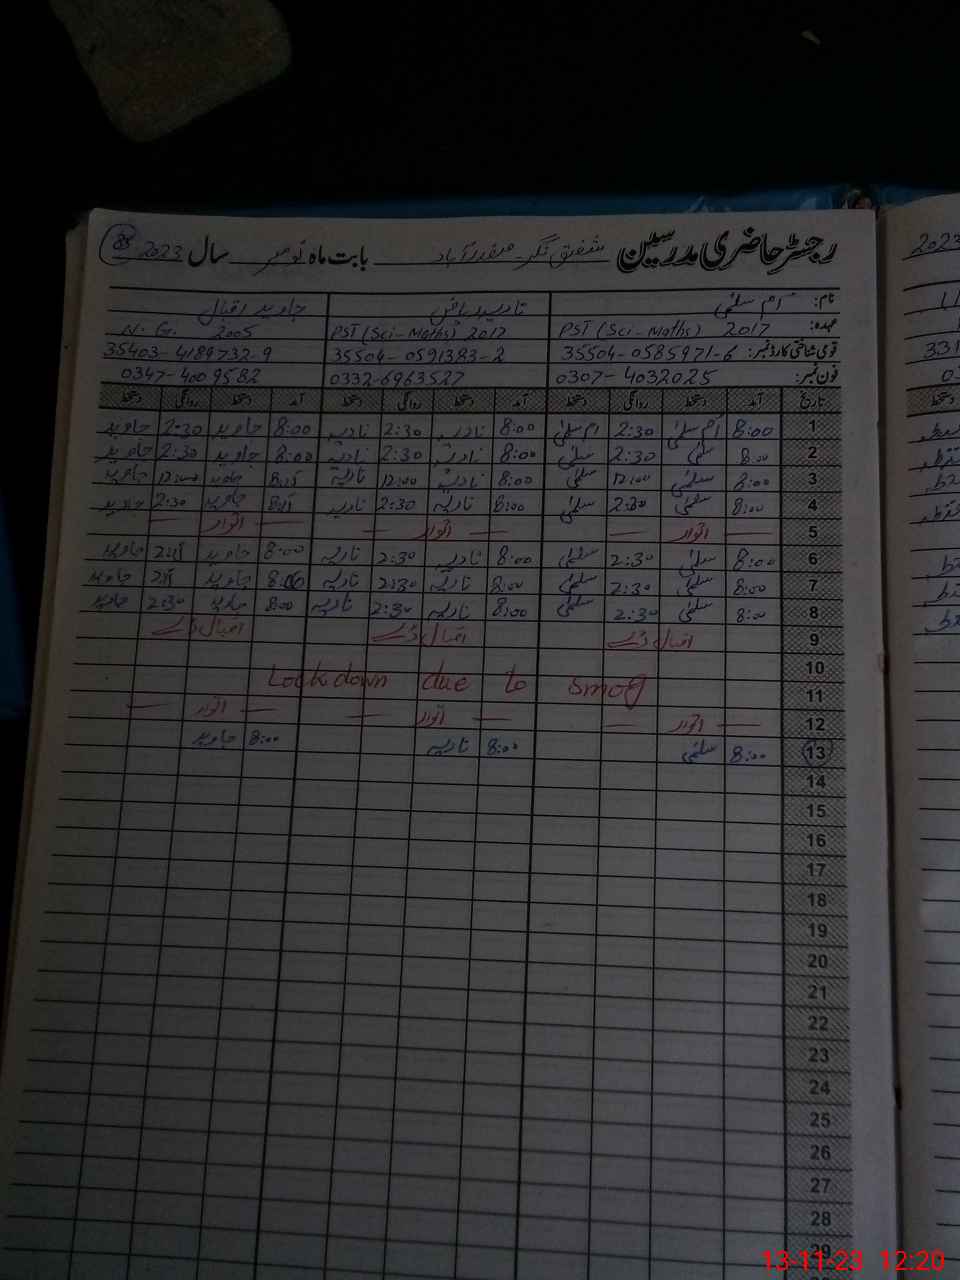 رجسٹر حاضری مدرسین شفیق نگر۔ صفدرآباد بابت ماہ نومبر سال 2023
نام: ام سلمٰی نادیہ ریاض جاوید اقبال
عہدہ: PST (Sci-Maths) 2017 PST (Sci-Maths) 2017 N.G. 2005
قومی شناختی کارڈ نمبر: 35504-0585971-6 35504-0591383-2 35403-4189732-9
فون نمبر: 0307-4032025 0332-6963527 0347-4009582
تاریخ آمد دستخط روانگی دستخط آمد دستخط روانگی دستخط آمد دستخط روانگی دستخط
1 8:00 ام سلمٰی 2:30 ام سلمٰی 8:00 نادیہ 2:30 نادیہ 8:00 جاوید 2:30 جاوید
2 8:00 سلمٰی 2:30 سلمٰی 8:00 نادیہ 2:30 نادیہ 8:00 جاوید 2:30 جاوید
3 8:00 سلمٰی 12:00 سلمٰی 8:00 نادیہ 12:00 نادیہ 8:15 جاوید 12:00 جاوید
4 8:00 سلمٰی 2:30 سلمٰی 8:00 نادیہ 2:30 نادیہ 8:15 جاوید 2:30 جاوید
5 — اتوار — — اتوار — — اتوار —
6 8:00 سلمٰی 2:30 سلمٰی 8:00 نادیہ 2:30 نادیہ 8:00 جاوید 2:15 جاوید
7 8:00 سلمٰی 2:30 سلمٰی 8:00 نادیہ 2:30 نادیہ 8:00 جاوید جاوید
8 8:00 سلمٰی 2:30 سلمٰی 8:00 نادیہ 2:30 نادیہ 8:00 جاوید 2:30 جاوید
9 اقبال ڈے اقبال ڈے اقبال ڈے
10
Lockdown due to smog
11
12 — اتوار — — اتوار — — اتوار —
13 8:00 سلمٰی 8:00 نادیہ 8:00 جاوید
14
15
16
17
18
19
20
21
22
23
24
25
26
27
28
29
2023
13-11-23 12:20